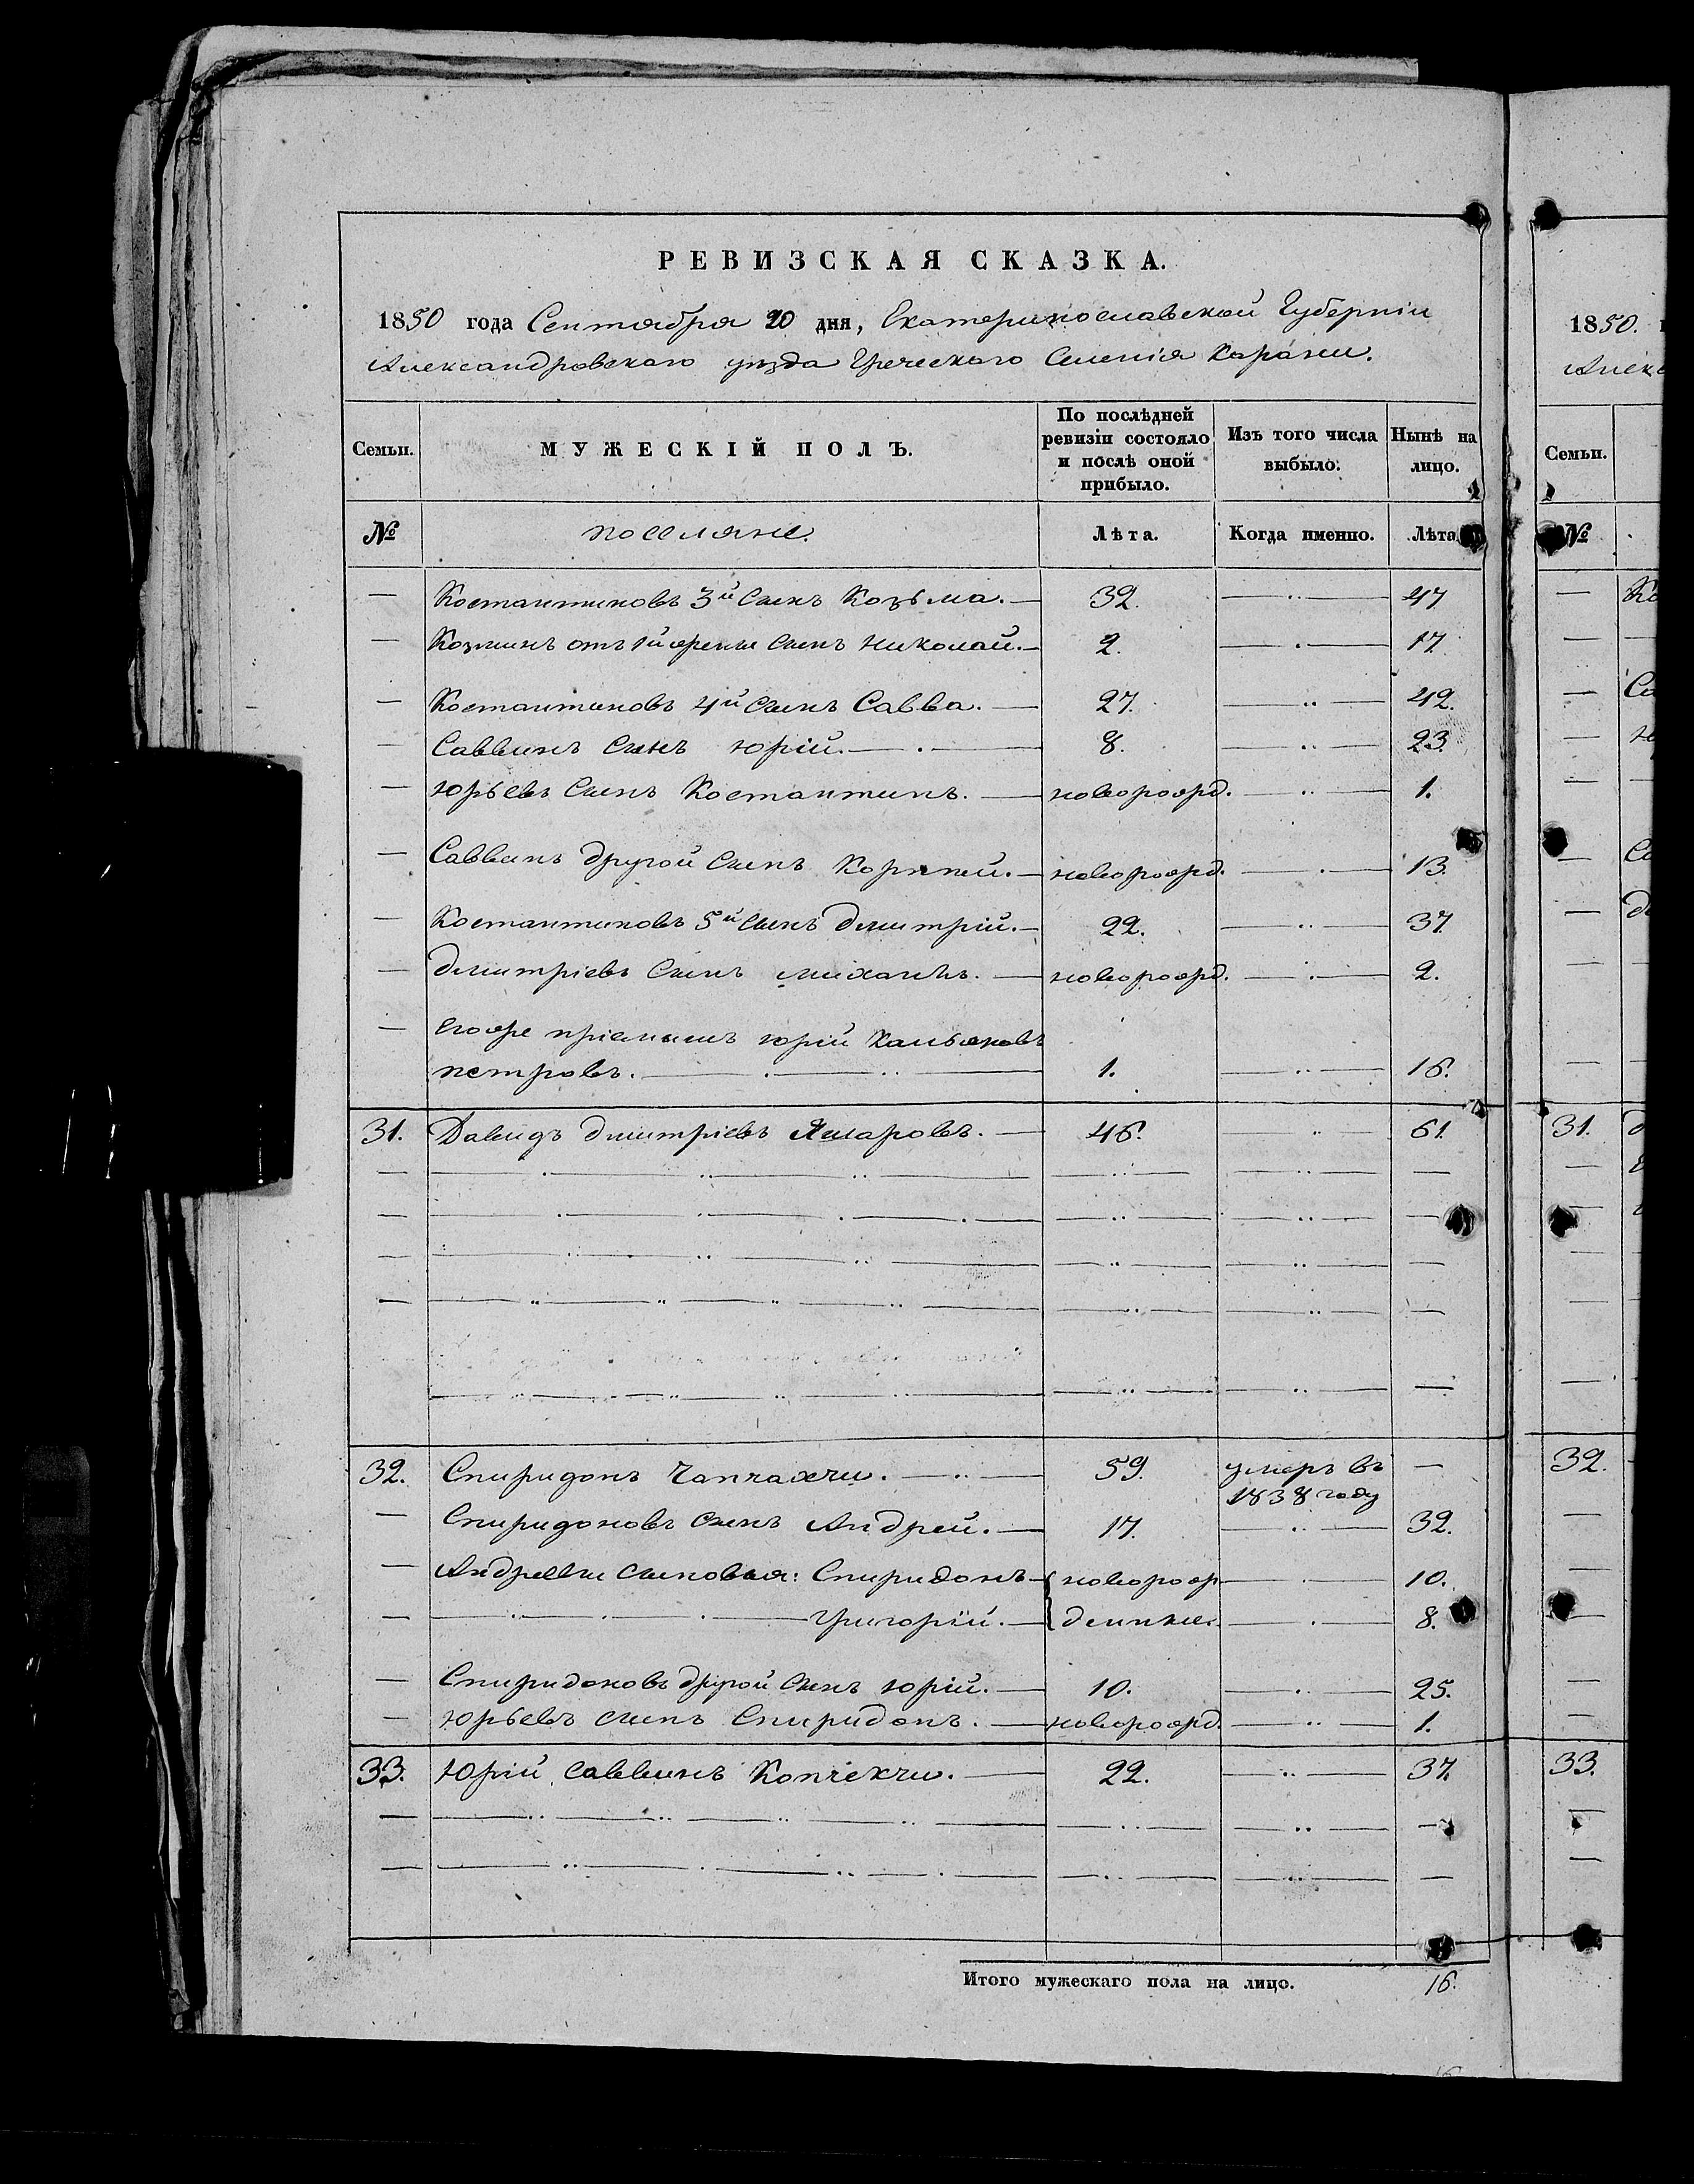 РЕВИЗСКАЯ СКАЗКА.
1850 года Сентября 20 дня, Екатеринославской Губерніи
Александровскаго уѣзда Греческаго Селенія Карани.
Семьи. МУЖЕСКІЙ ПОЛЪ. По послѣдней ревизіи состояло и послѣ оной прибыло. Изъ того числа выбыло. Нынѣ на лицо.
№ поселяне. Лѣта. Когда именно. Лѣта
— Костантиновъ 3й Сынъ Козьма. — 32. — 47
— Козминъ отъ 1й жены сынъ Николай. — 2. — 17.
— Костантиновъ 4й Сынъ Савва. — 27. — 42.
— Саввинъ Сынъ Юрій. — 8. — 23.
— Юрьевъ Сынъ Костантинъ. — новорожд. — 1.
— Саввинъ другой Сынъ Корнѣй. — новорожд. — 13.
— Костантиновъ 5й сынъ Дмитрій. — 22. — 37.
— Дмитріевъ Сынъ Михаилъ. — новорожд. — 2.
— Егоже пріемышъ Юрій
Петровъ. — 1. — 16.
31. Давидъ Дмитріевъ — 46. — 61.
32. Спиридонъ Чапчахчи. — 59. умеръ въ —
1838 году
— Спиридоновъ Сынъ Андрей. — 17. — 32.
— Андреевы сыновья: Спиридонъ — новорож — 10.
— Григорій. — денные. — 8.
— Спиридоновъ другой Сынъ Юрій. — 10. — 25.
— Юрьевъ сынъ Спиридонъ. — новорожд. — 1.
33. Юрій Саввинъ Копчекчи. — 22. — 37.
Итого мужескаго пола на лицо. 16.
1850.
Семьи.
№
31.
32.
33.